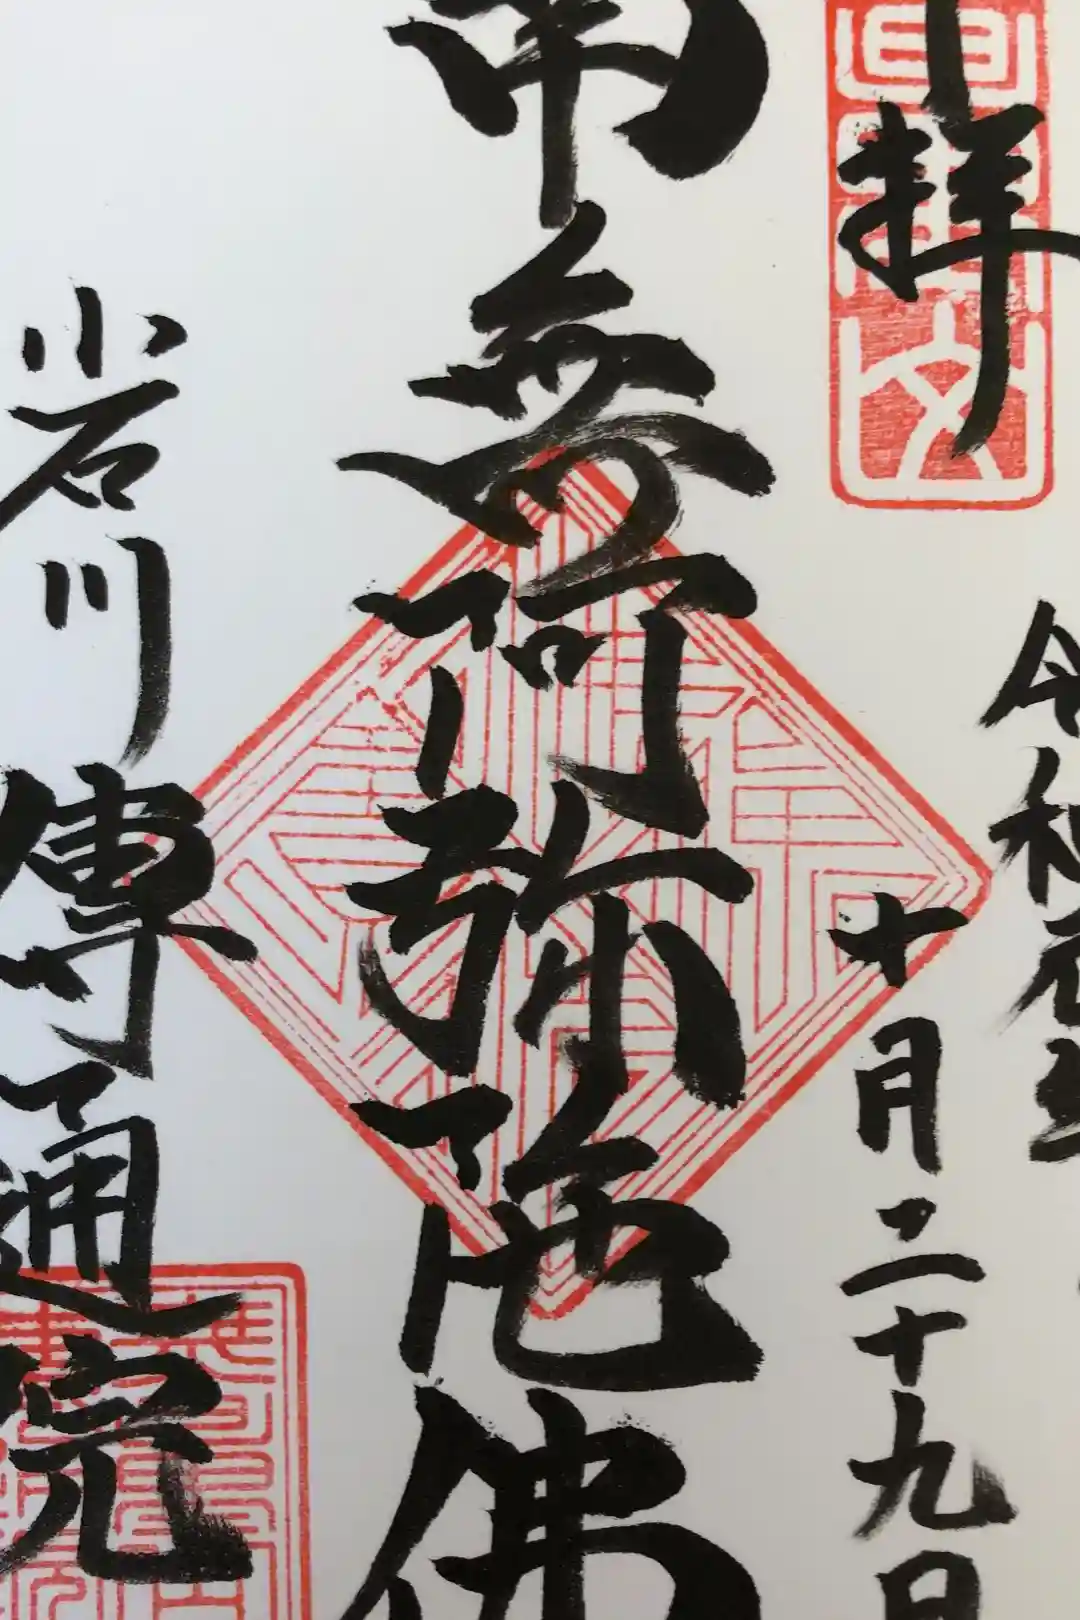 拝
令和元年
十月二十九日
南無阿弥陀佛
小石川傳通院